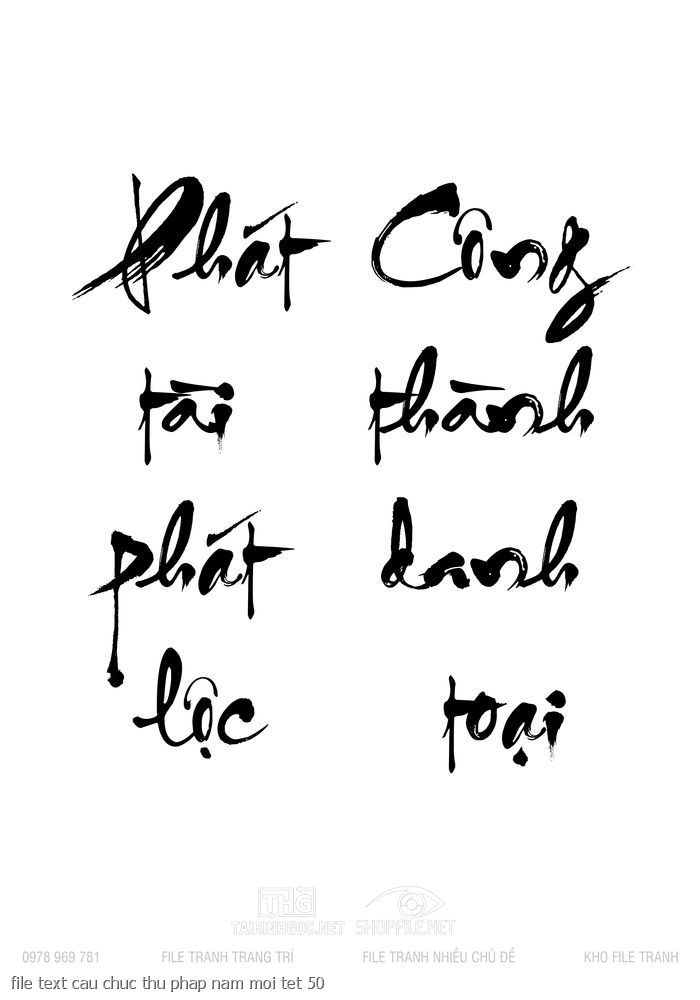 Phát
tài
phát
lộc
Công
thành
danh
toại
THG
TAIHINHGOC.NET SHOPFILE.NET
0978 969 781 FILE TRANH TRANG TRÍ FILE TRANH NHIỀU CHỦ ĐỀ KHO FILE TRANH
file text cau chuc thu phap nam moi tet 50